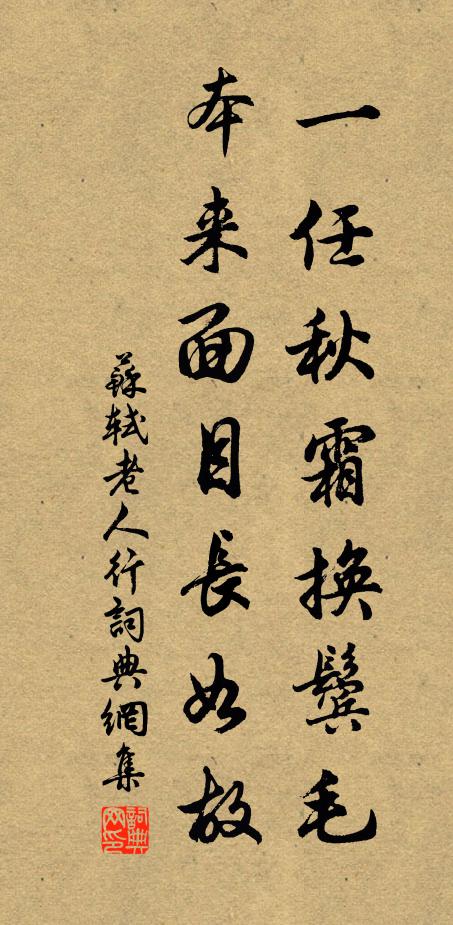 一任秋霜換鬢毛
本来面目長如故
蘇軾老人行詞典網集
詞典网印